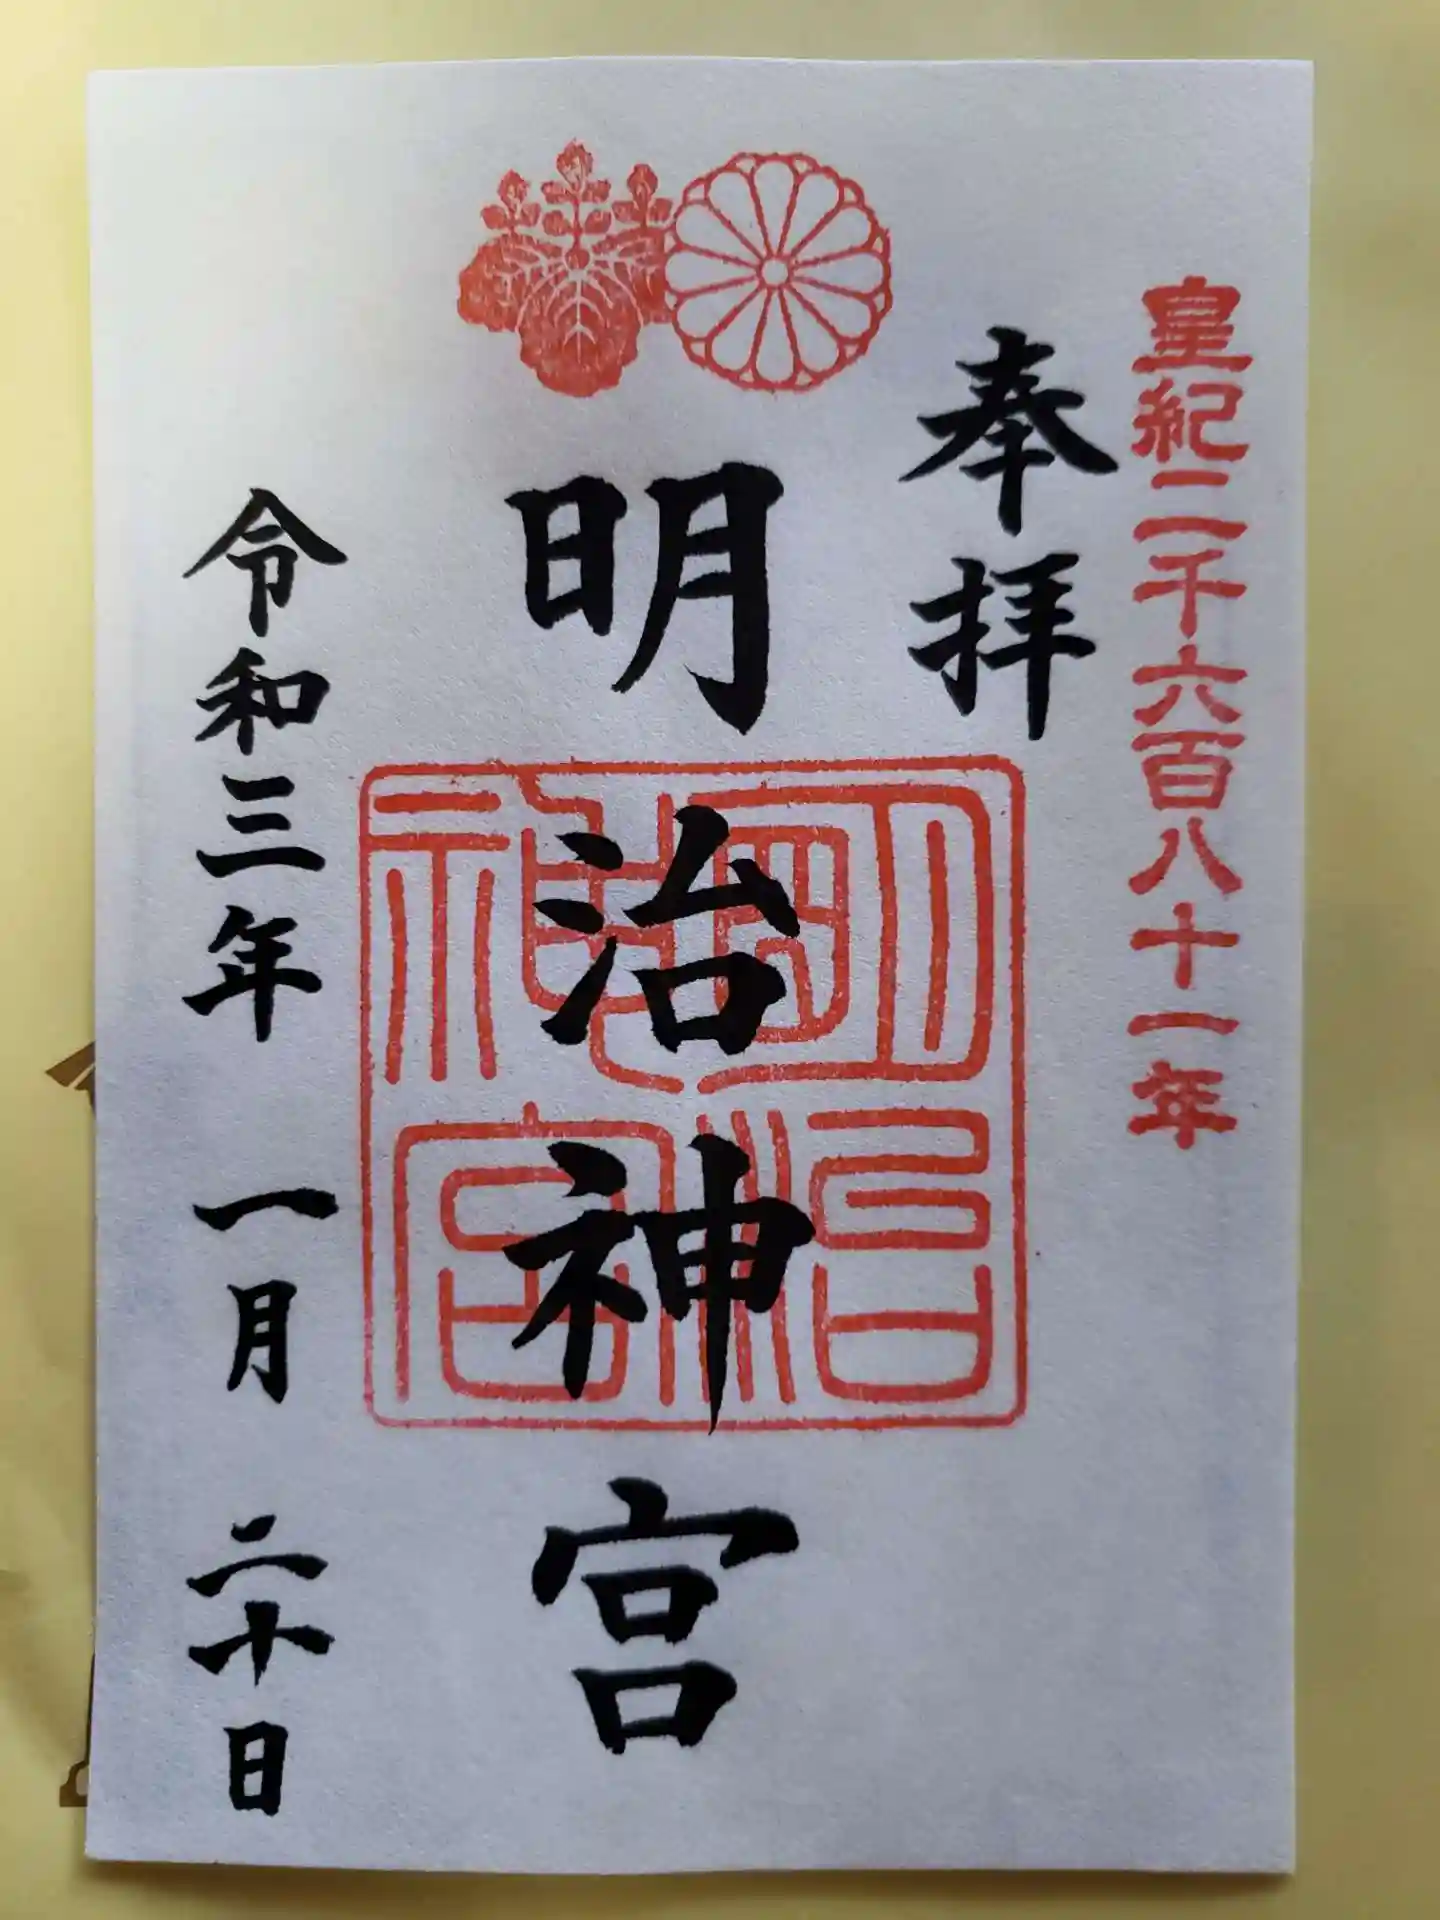 皇紀二千六百八十一年
奉拝
明治神宮
明治神宮
令和三年 一月 二十日